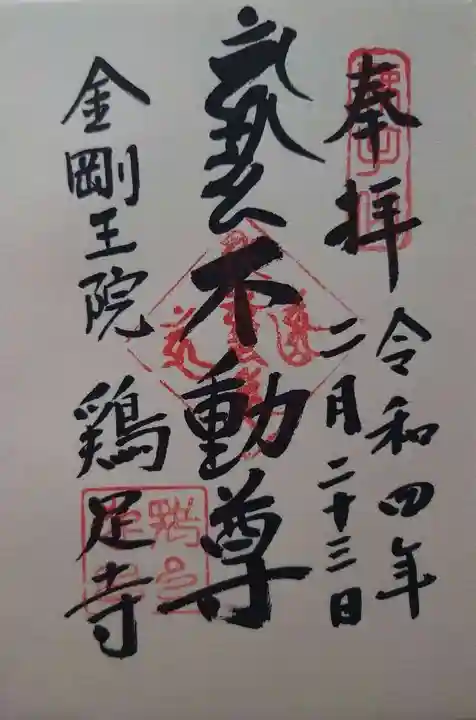 奉拝
令和四年
二月二十三日
藝不動尊
金剛王院
鶏足寺